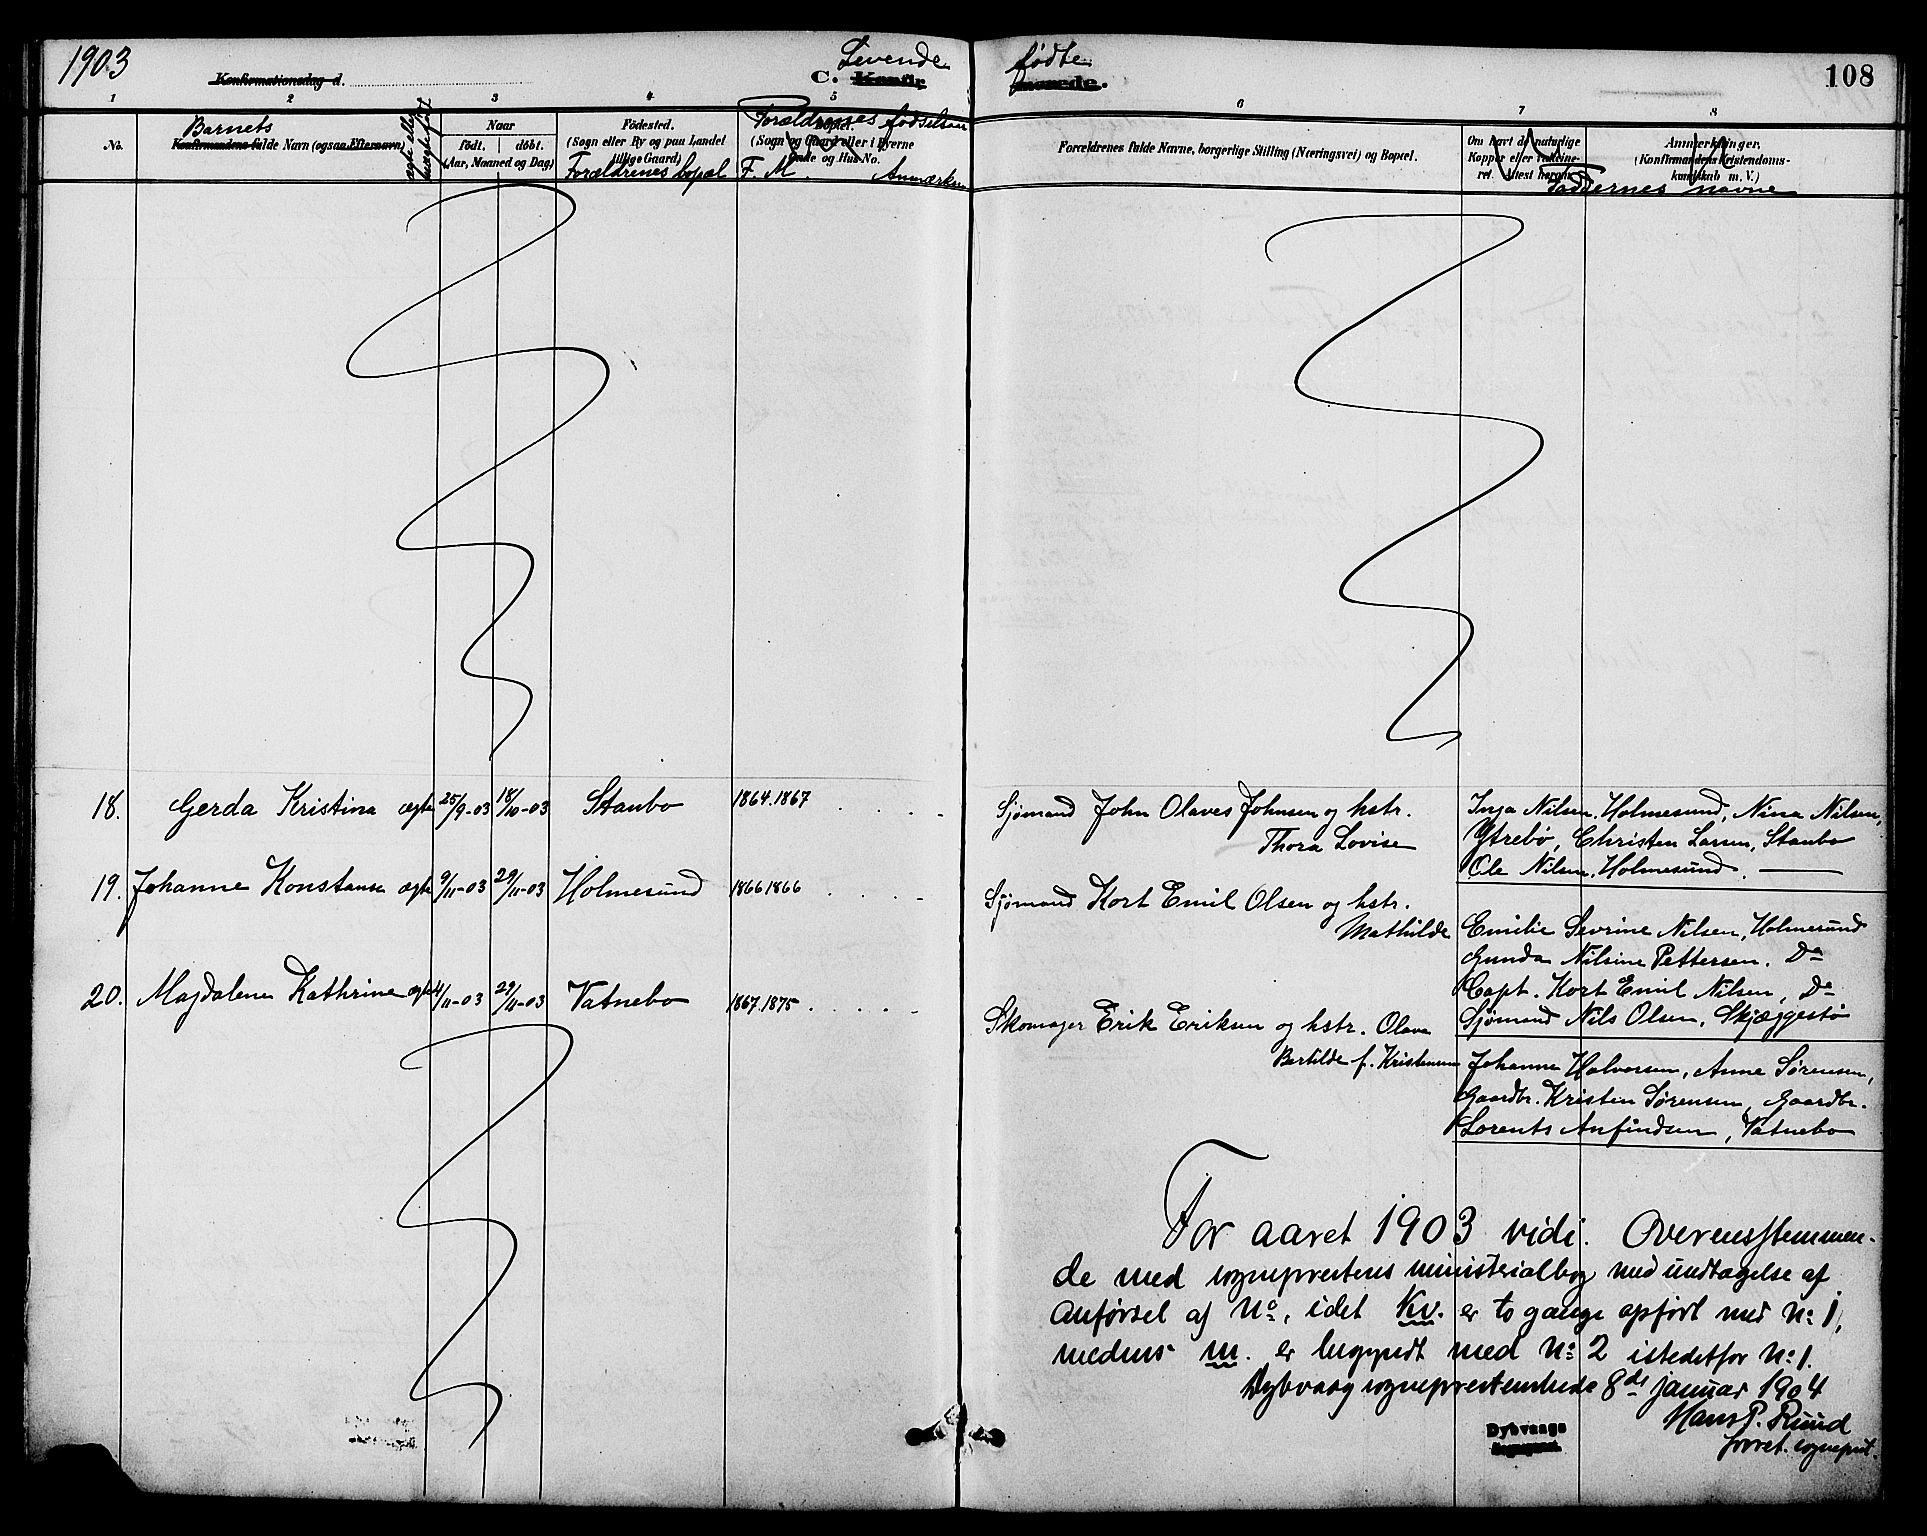 1903
Levende fødte
Konfirmationsdag d.
C. Konfirmerede.
108
1 2 3 4 5 6 7 8
No.
Barnets
Konfirmandens fulde Navn (ogsaa Efternavn)
ægte eller uægte født
Naar
født. døbt.
(Aar, Maaned og Dag)
Födested.
(Sogn eller By og paa Landet
tillige Gaard)
Forældrenes bopæl
Forældrenes fødselsaar
Bopæl.
(Sogn og Gaard eller i Byerne
Gade og Hus-No.
F. M. Anmærkn
Forældrenes fulde Navne, borgerlige Stilling (Næringsvei) og Bopæl.
Om havt de naturlige
Kopper eller vakcine-
ret. Attest herom.
Anmerkninger.
(Konfirmandens Kristendoms-
kundskab m. V.)
Faddernes navne
18. Gerda Kristina ægte 25/9-03 18/10-03 Staubo 1864.1867
Sjømand John Olaves Johnsen og hstr.
Thora Lovise
Inga Nilsen, Holmesund, Nina Nilsen,
Ytrebø, Christen Larsen, Staubo
Ole Nilsen, Holmesund.
19. Johanne Konstanse ægte 9/11-03 29/11-03 Holmesund 1866.1866
Sjømand Kort Emil Olsen og hstr.
Mathilde
Emilie Sevrine Nilsen, Holmesund
Gunda Nilsine Pettersen. Do
Capt. Kort Emil Nilsen, Do
Sjømand Nils Olsen, Skjæggestø
20. Magdalene Kathrine ægte 4/11-03 29/11-03 Vatnebo 1867.1875
Skomager Erik Eriksen og hstr. Olava
Bertilde f. Kristensen
Johanne Halvorsen, Anne Sørensen,
Gaardbr. Kristen Sørensen, Gaardbr.
Lorents Anfindsen, Vatnebo
For aaret 1903 vidi. Overensstemmen-
de med sogneprestens ministerialbog med undtagelse af
anførsel af No, idet Kv. er to gange opført med No 1,
medens m. er begyndt med No 2 istedetfor No 1.
Dybvaag sogneprestembede 8de januar 1904
Hans P. Ruud
forret. sogneprest.
Dybvaags
Sogneprest.